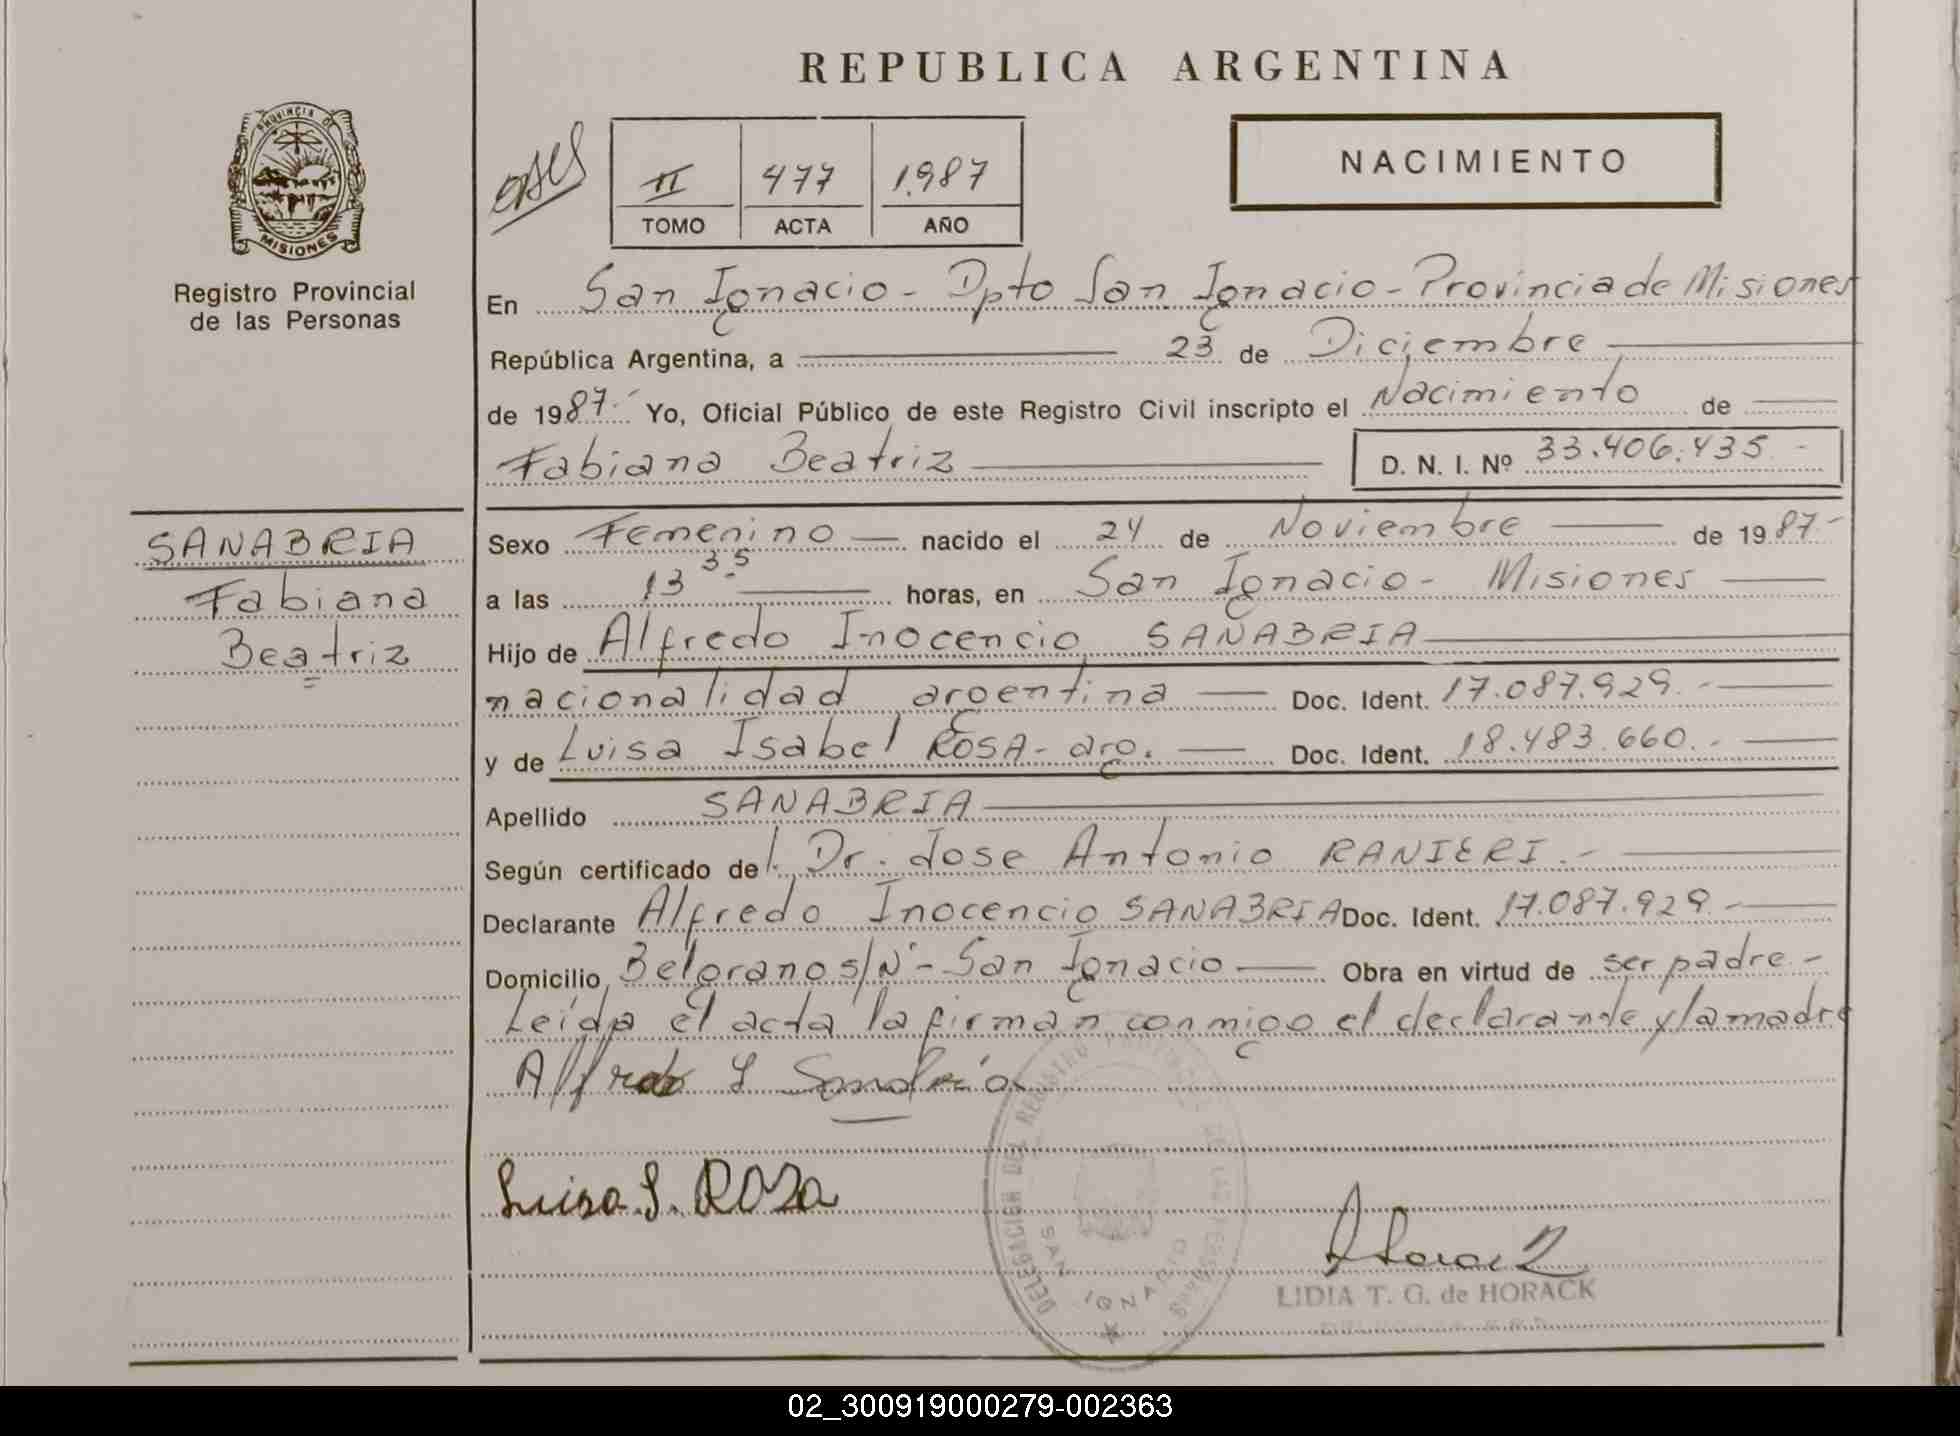 REPUBLICA ARGENTINA
PROVINCIA DE
MISIONES
Registro Provincial
de las Personas
II 477 1.987
TOMO ACTA AÑO
NACIMIENTO
En San Ignacio - Dpto San Ignacio - Provincia de Misiones
República Argentina, a 23 de Diciembre
de 1987.- Yo, Oficial Público de este Registro Civil inscripto el Nacimiento de
Fabiana Beatriz D. N. I. Nº 33.406.435 -
SANABRIA
Fabiana
Beatriz
Sexo Femenino nacido el 24 de Noviembre de 1987.-
a las 13 35 horas, en San Ignacio - Misiones
Hijo de Alfredo Inocencio SANABRIA
nacionalidad argentina Doc. Ident. 17.087.929.-
y de Luisa Isabel ROSA - arg. Doc. Ident. 18.483.660.-
Apellido SANABRIA
Según certificado del Dr. Jose Antonio RANIERI.-
Declarante Alfredo Inocencio SANABRIA Doc. Ident. 17.087.929.-
Domicilio Belgrano s/Nº - San Ignacio Obra en virtud de ser padre.-
Leída el acta la firman conmigo el declarante y la madre
Alfredo I Sanabria
Luisa. I. ROSA
DELEGACION DEL REGISTRO PROVINCIAL DE LAS PERSONAS
SAN IGNACIO
Horack
LIDIA T. G. de HORACK
02_300919000279-002363